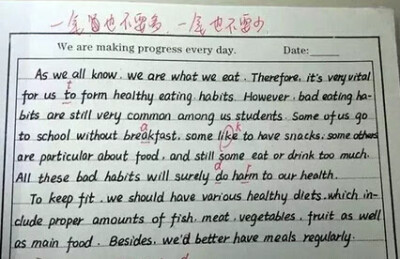 一气写也不要多，一气也不要少
We are making progress every day. Date:
As we all know, we are what we eat. Therefore, it's very vital
for us to form healthy eating habits. However, bad eating ha-
bits are still very common among us students. Some of us go
to school without breakfast, some like to have snacks, some others
are particular about food, and still some eat or drink too much.
All these bad habits will surely do harm to our health.
To keep fit, we should have various healthy diets, which in-
clude proper amounts of fish, meat, vegetables, fruit as well
as main food. Besides, we'd better have meals regularly.